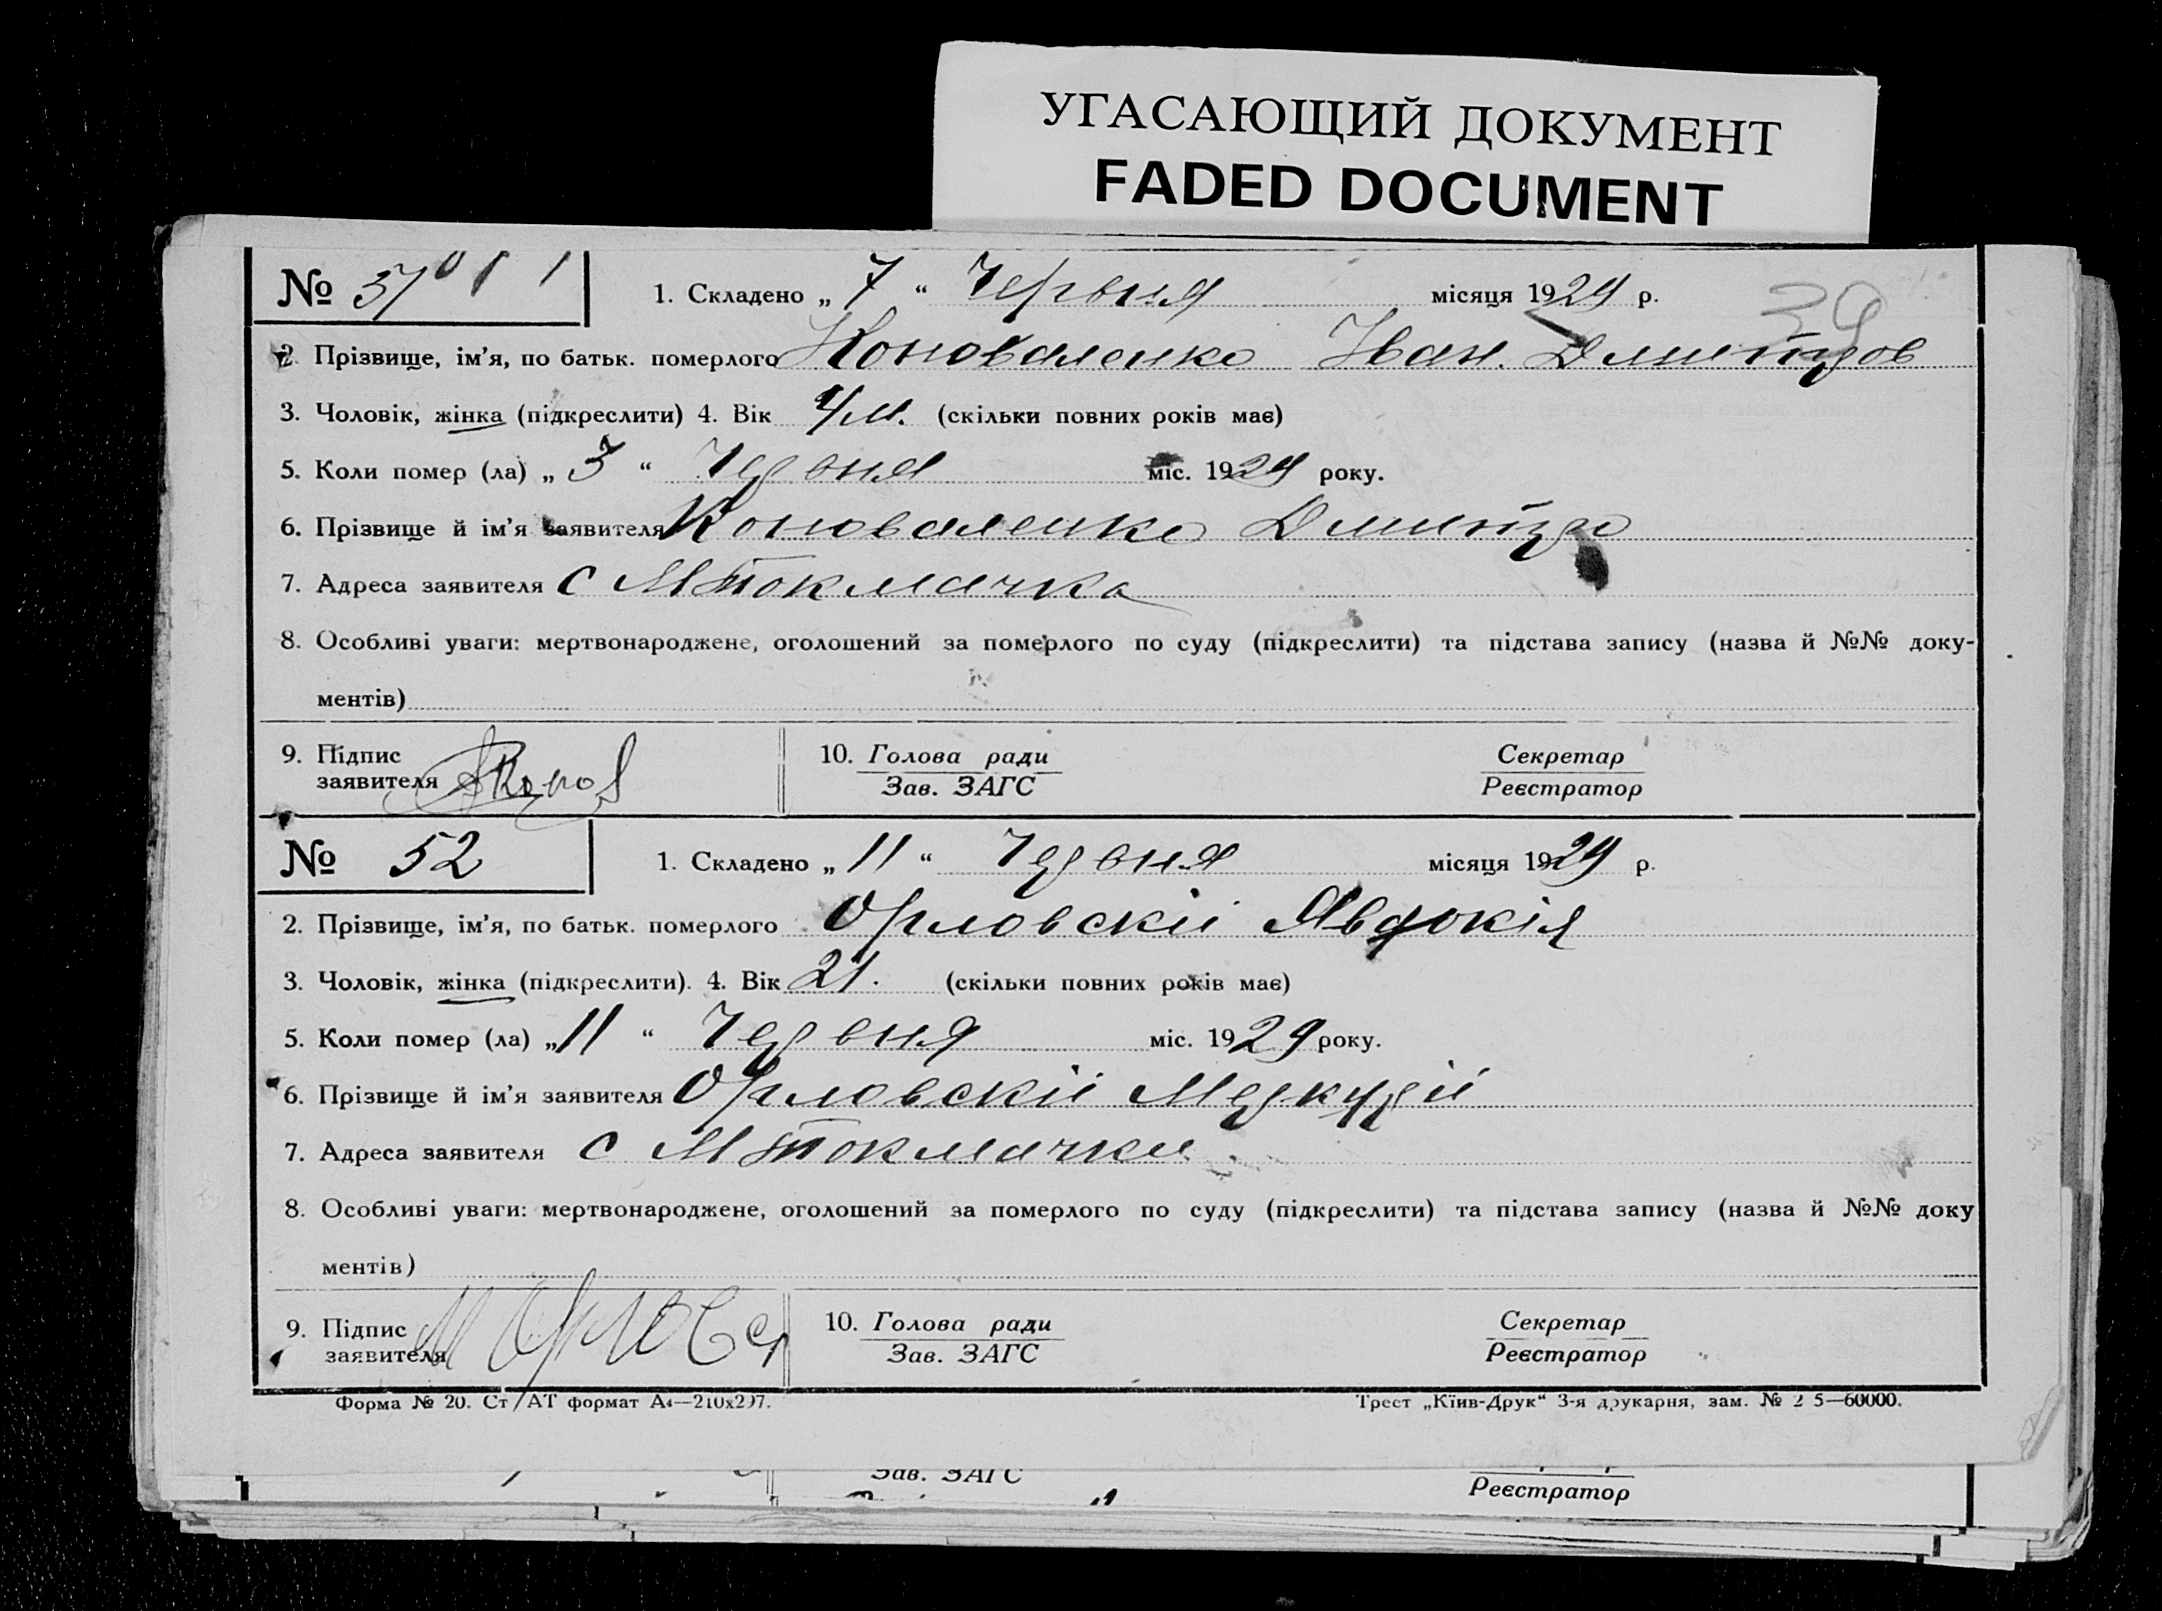 УГАСАЮЩИЙ ДОКУМЕНТ
FADED DOCUMENT
39
№ 51 1. Складено „ 7 “ Червня місяця 1929 р.
2. Прізвище, ім’я, по батьк. померлого Коноваленко Іван. Дмитров
3. Чоловік, жінка (підкреслити) 4. Вік 4 м. (скільки повних років має)
5. Коли помер (ла) „ 3 “ Червня міс. 1929 року.
6. Прізвище й ім’я заявителя Коноваленко Дмитро
7. Адреса заявителя с М Токмачка
8. Особливі уваги: мертвонароджене, оголошений за померлого по суду (підкреслити) та підстава запису (назва й №№ доку-
ментів)
9. Підпис заявителя 10. Голова ради Секретар
Зав. ЗАГС Реєстратор
№ 52 1. Складено „ 11 “ Червня місяця 1929 р.
2. Прізвище, ім’я, по батьк. померлого Орловскій Явдокія
3. Чоловік, жінка (підкреслити). 4. Вік 21. (скільки повних років має)
5. Коли помер (ла) „ 11 “ Червня міс. 1929 року.
6. Прізвище й ім’я заявителя Орловскій Меркурій
7. Адреса заявителя с М Токмачка
8. Особливі уваги: мертвонароджене, оголошений за померлого по суду (підкреслити) та підстава запису (назва й №№ доку
ментів)
9. Підпис заявителя М Орловс 10. Голова ради Секретар
Зав. ЗАГС Реєстратор
Форма № 20. Ст/АТ формат А4—210х297. Трест „Київ-Друк“ 3-я друкарня, зам. № 2 5—60000.
Зав. ЗАГС Реєстратор